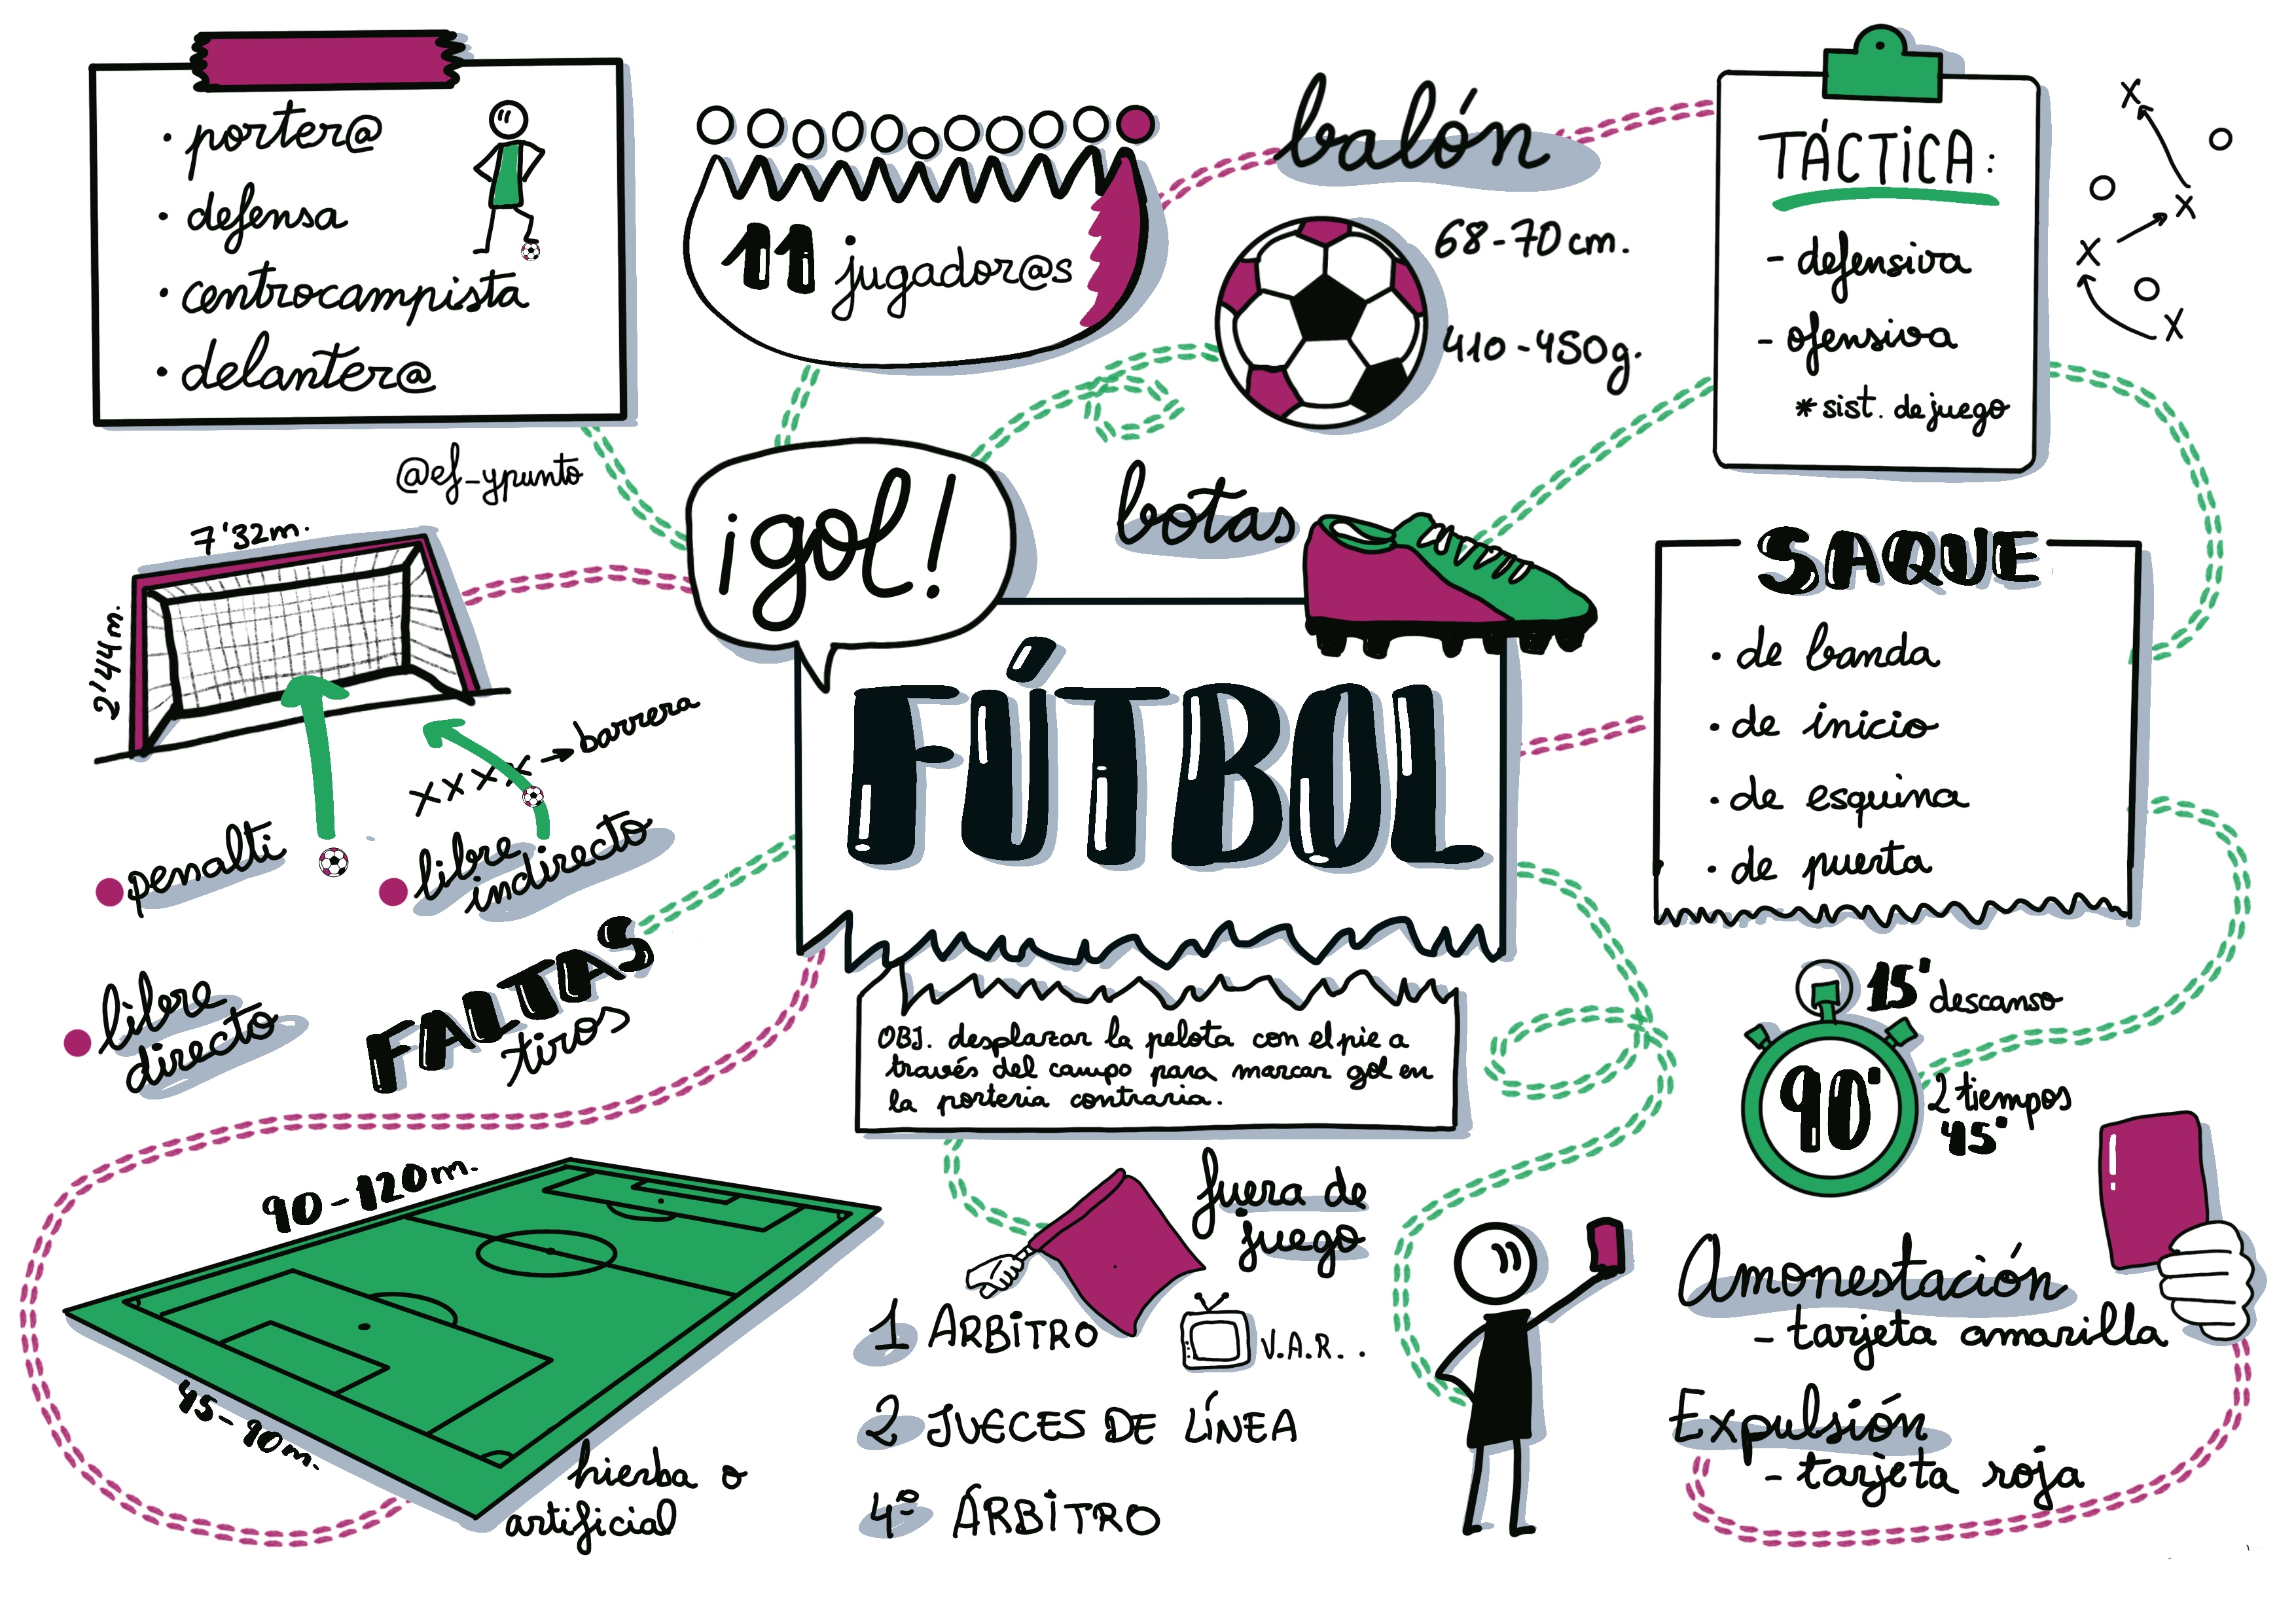 · porter@
· defensa
· centrocampista
· delanter@
@ef_ypunto
11 jugador@s
balón
68-70 cm.
410-450g.
TÁCTICA:
- defensiva
- ofensiva
* sist. de juego
¡gol!
botas
FÚTBOL
OBJ. desplazar la pelota con el pie a
través del campo para marcar gol en
la porteria contraria.
7'32m.
2'44m.
barrera
penalti
libre
indirecto
libre
directo
FALTAS
tiros
SAQUE
· de banda
· de inicio
· de esquina
· de puerta
15' descanso
90'
2 tiempos
45'
90-120m.
45-90m.
hierba o
artificial
fuera de
juego
1 ARBITRO
V.A.R. .
2 JUECES DE LÍNEA
4º ÁRBITRO
Amonestación
- tarjeta amarilla
Expulsión
- tarjeta roja